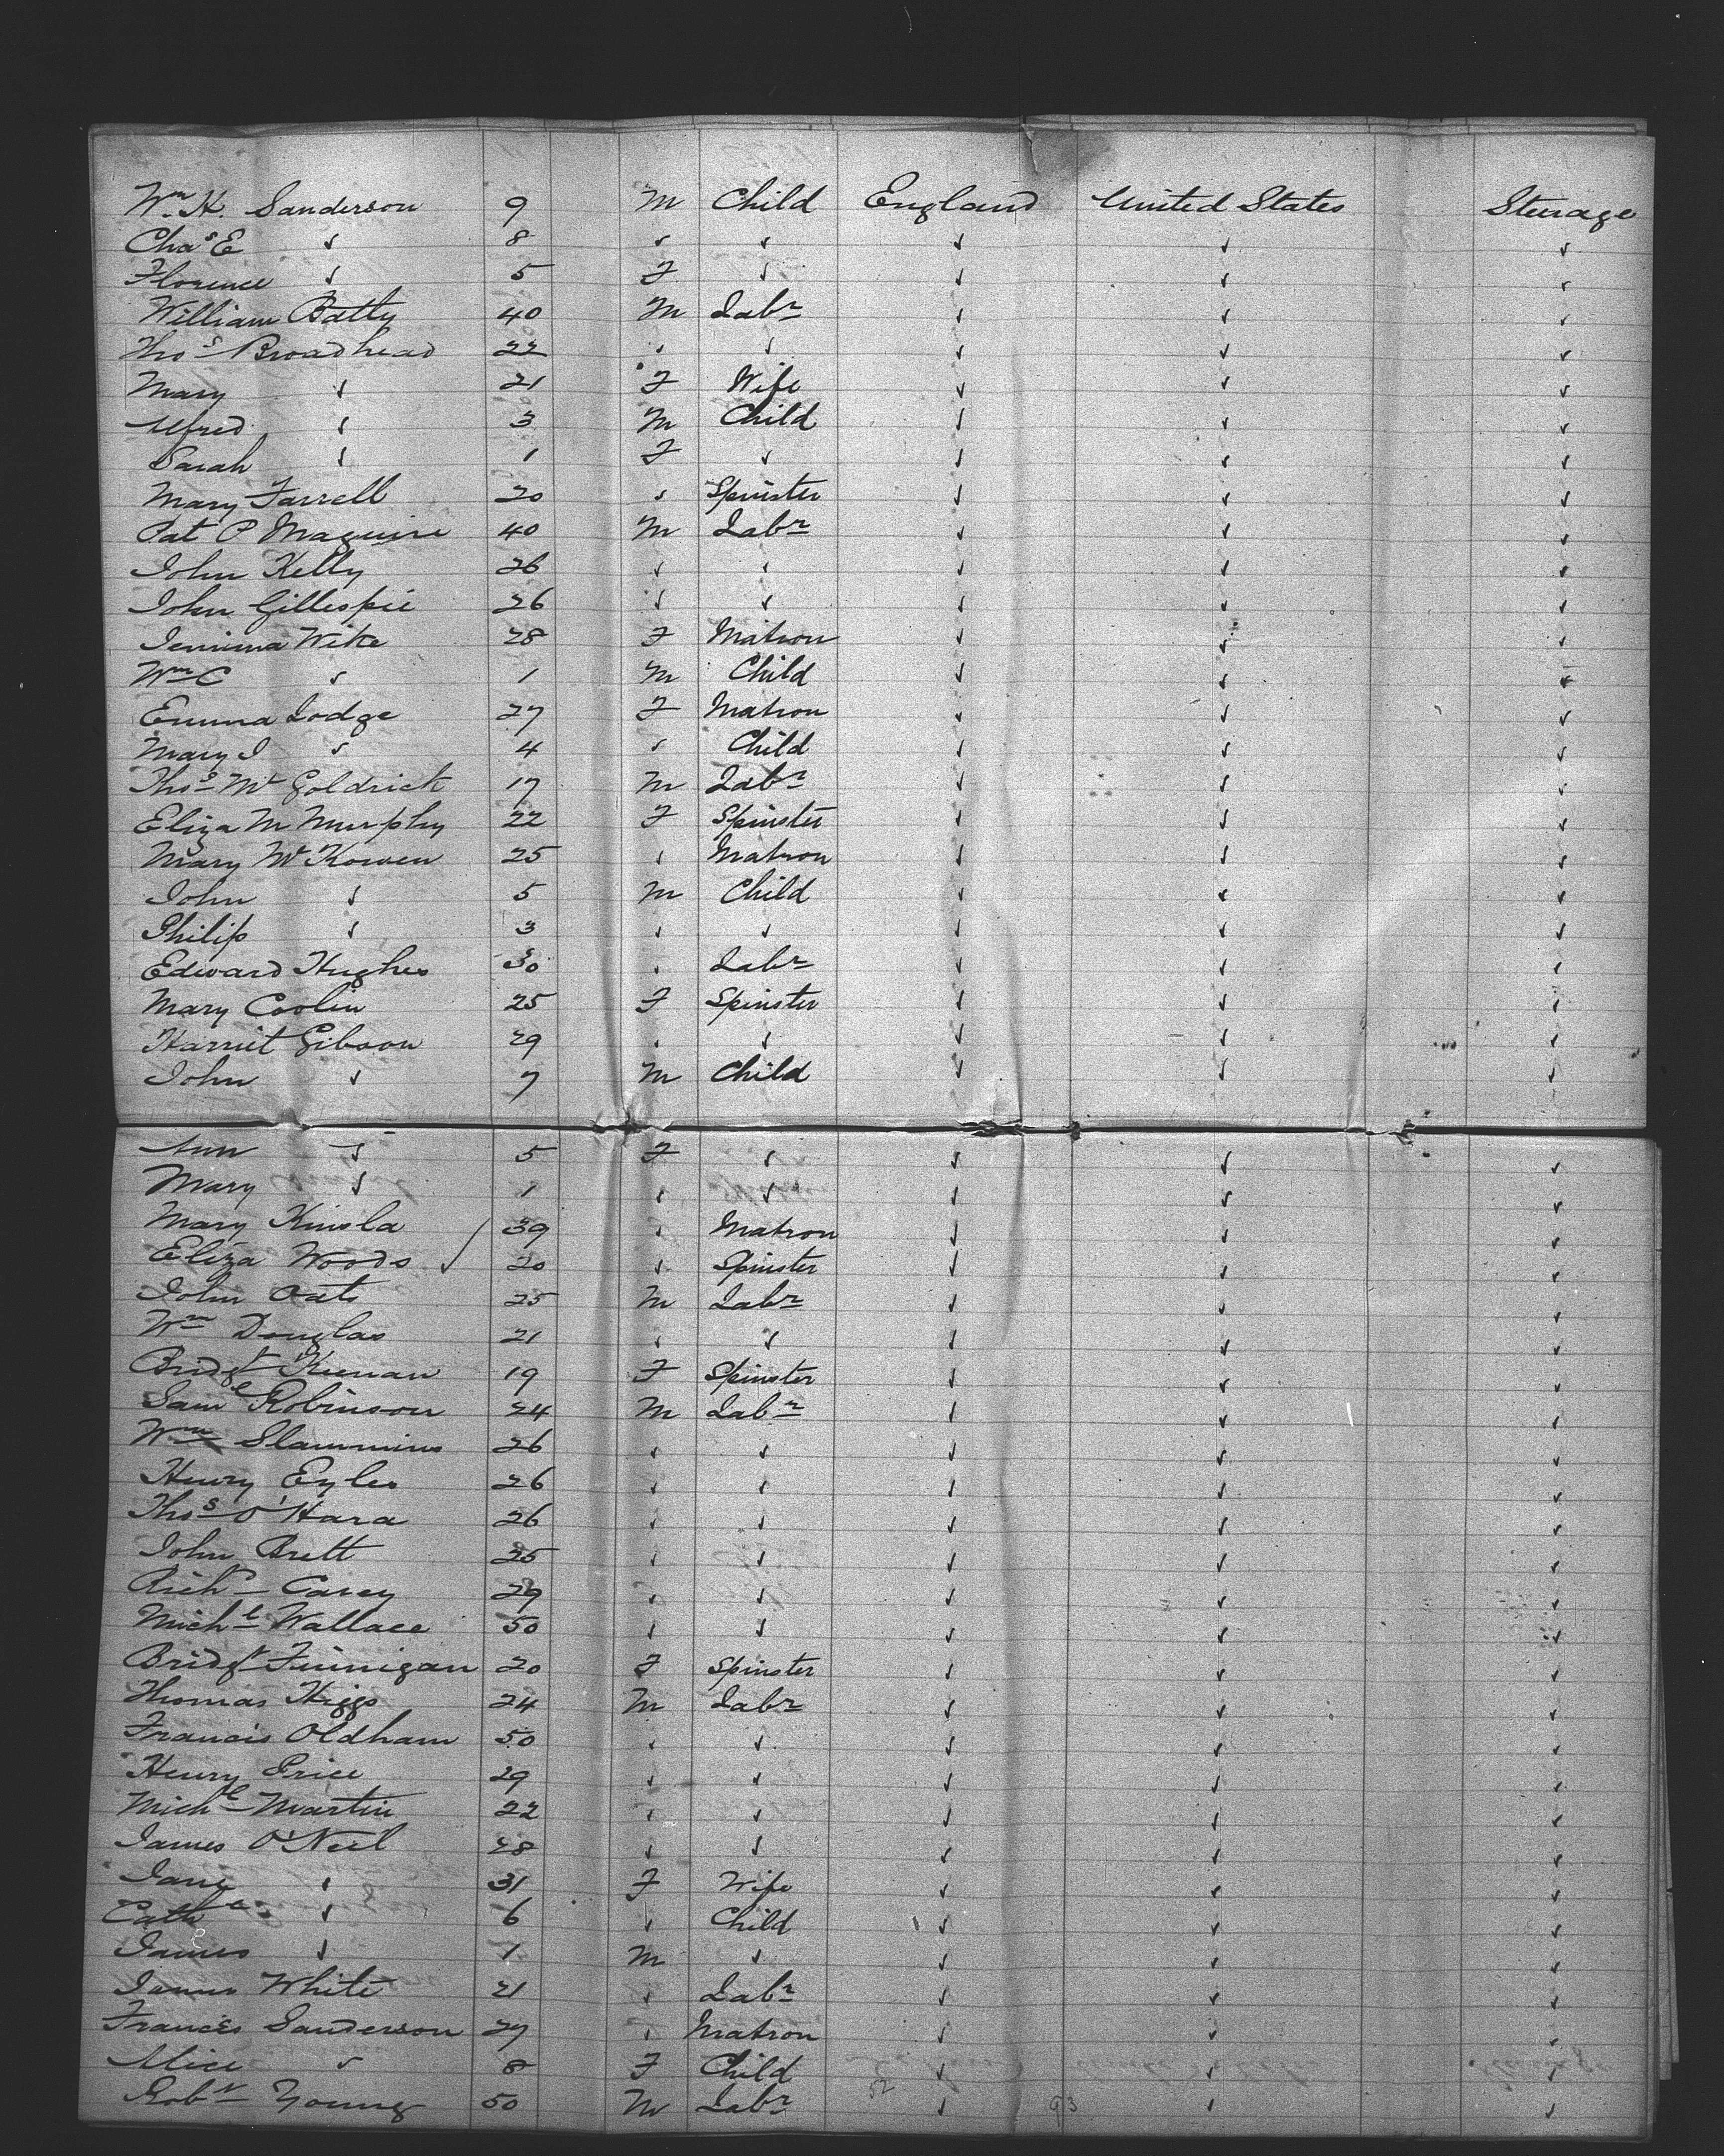 Wm H. Sanderson 9 M Child England United States Steerage
Chas E ✓ 8 ✓ ✓ ✓ ✓ ✓
Florence ✓ 5 F ✓ ✓ ✓ ✓
William Batty 40 M Labr ✓ ✓ ✓
Thos Broadhead 22 ✓ ✓ ✓ ✓ ✓
Mary ✓ 21 F Wife ✓ ✓ ✓
Alfred ✓ 3 M Child ✓ ✓ ✓
Sarah ✓ 1 F ✓ ✓ ✓ ✓
Mary Farrell 20 ✓ Spinster ✓ ✓ ✓
Pat P Maguire 40 M Labr ✓ ✓ ✓
John Kelly 26 ✓ ✓ ✓ ✓ ✓
John Gillespie 26 ✓ ✓ ✓ ✓ ✓
Jemima Wike 28 F Matron ✓ ✓ ✓
Wm C ✓ 1 M Child ✓ ✓ ✓
Emma Lodge 27 F Matron ✓ ✓ ✓
Mary J ✓ 4 ✓ Child ✓ ✓ ✓
Thos Mc Goldrick 17 M Labr ✓ ✓ ✓
Eliza M Murphy 22 F Spinster ✓ ✓ ✓
Mary Mc Kowen 25 ✓ Matron ✓ ✓ ✓
John ✓ 5 M Child ✓ ✓ ✓
Philip ✓ 3 ✓ ✓ ✓ ✓ ✓
Edward Hughes 30 ✓ Labr ✓ ✓ ✓
Mary Coolin 25 F Spinster ✓ ✓ ✓
Harriet Gibson 29 ✓ ✓ ✓ ✓ ✓
John ✓ 7 M Child ✓ ✓ ✓
Ann ✓ 5 F ✓ ✓ ✓ ✓
Mary ✓ 1 ✓ ✓ ✓ ✓ ✓
Mary Kinsla 39 ✓ Matron ✓ ✓ ✓
Eliza Woods ✓ 20 ✓ Spinster ✓ ✓ ✓
John Oats 25 M Labr ✓ ✓ ✓
Wm Douglas 21 ✓ ✓ ✓ ✓ ✓
Bridgt Keenan 19 F Spinster ✓ ✓ ✓
Saml Robinson 24 M Labr ✓ ✓ ✓
Wm Slammins 26 ✓ ✓ ✓ ✓ ✓
Henry Eyles 26 ✓ ✓ ✓ ✓ ✓
Thos O'Hara 26 ✓ ✓ ✓ ✓ ✓
John Brett 25 ✓ ✓ ✓ ✓ ✓
Richd Carey 29 ✓ ✓ ✓ ✓ ✓
Michl Wallace 50 ✓ ✓ ✓ ✓ ✓
Bridgt Finnigan 20 F Spinster ✓ ✓ ✓
Thomas Higgs 24 M Labr ✓ ✓ ✓
Francis Oldham 50 ✓ ✓ ✓ ✓ ✓
Henry Price 29 ✓ ✓ ✓ ✓ ✓
Michl Martin 22 ✓ ✓ ✓ ✓ ✓
James O'Neil 28 ✓ ✓ ✓ ✓ ✓
Jane ✓ 31 F Wife ✓ ✓ ✓
Cathe ✓ 6 ✓ Child ✓ ✓ ✓
James ✓ 1 M ✓ ✓ ✓ ✓
James White 21 ✓ Labr ✓ ✓ ✓
Francis Sanderson 27 ✓ Matron ✓ ✓ ✓
Alice ✓ 8 F Child ✓ ✓ ✓
Robt Young 50 M Labr 52 ✓ 93 ✓ ✓